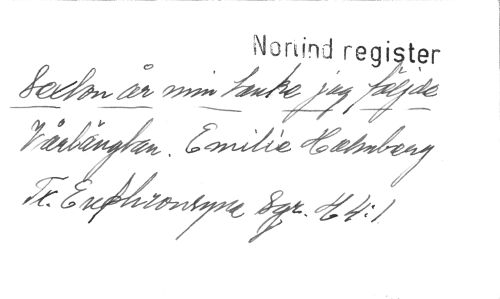 Norlind register
Sexton år min tanke jag följde
Vårlängtan. Emilie Holmberg
Tr. Euphrosyne Sgr. H 4:1